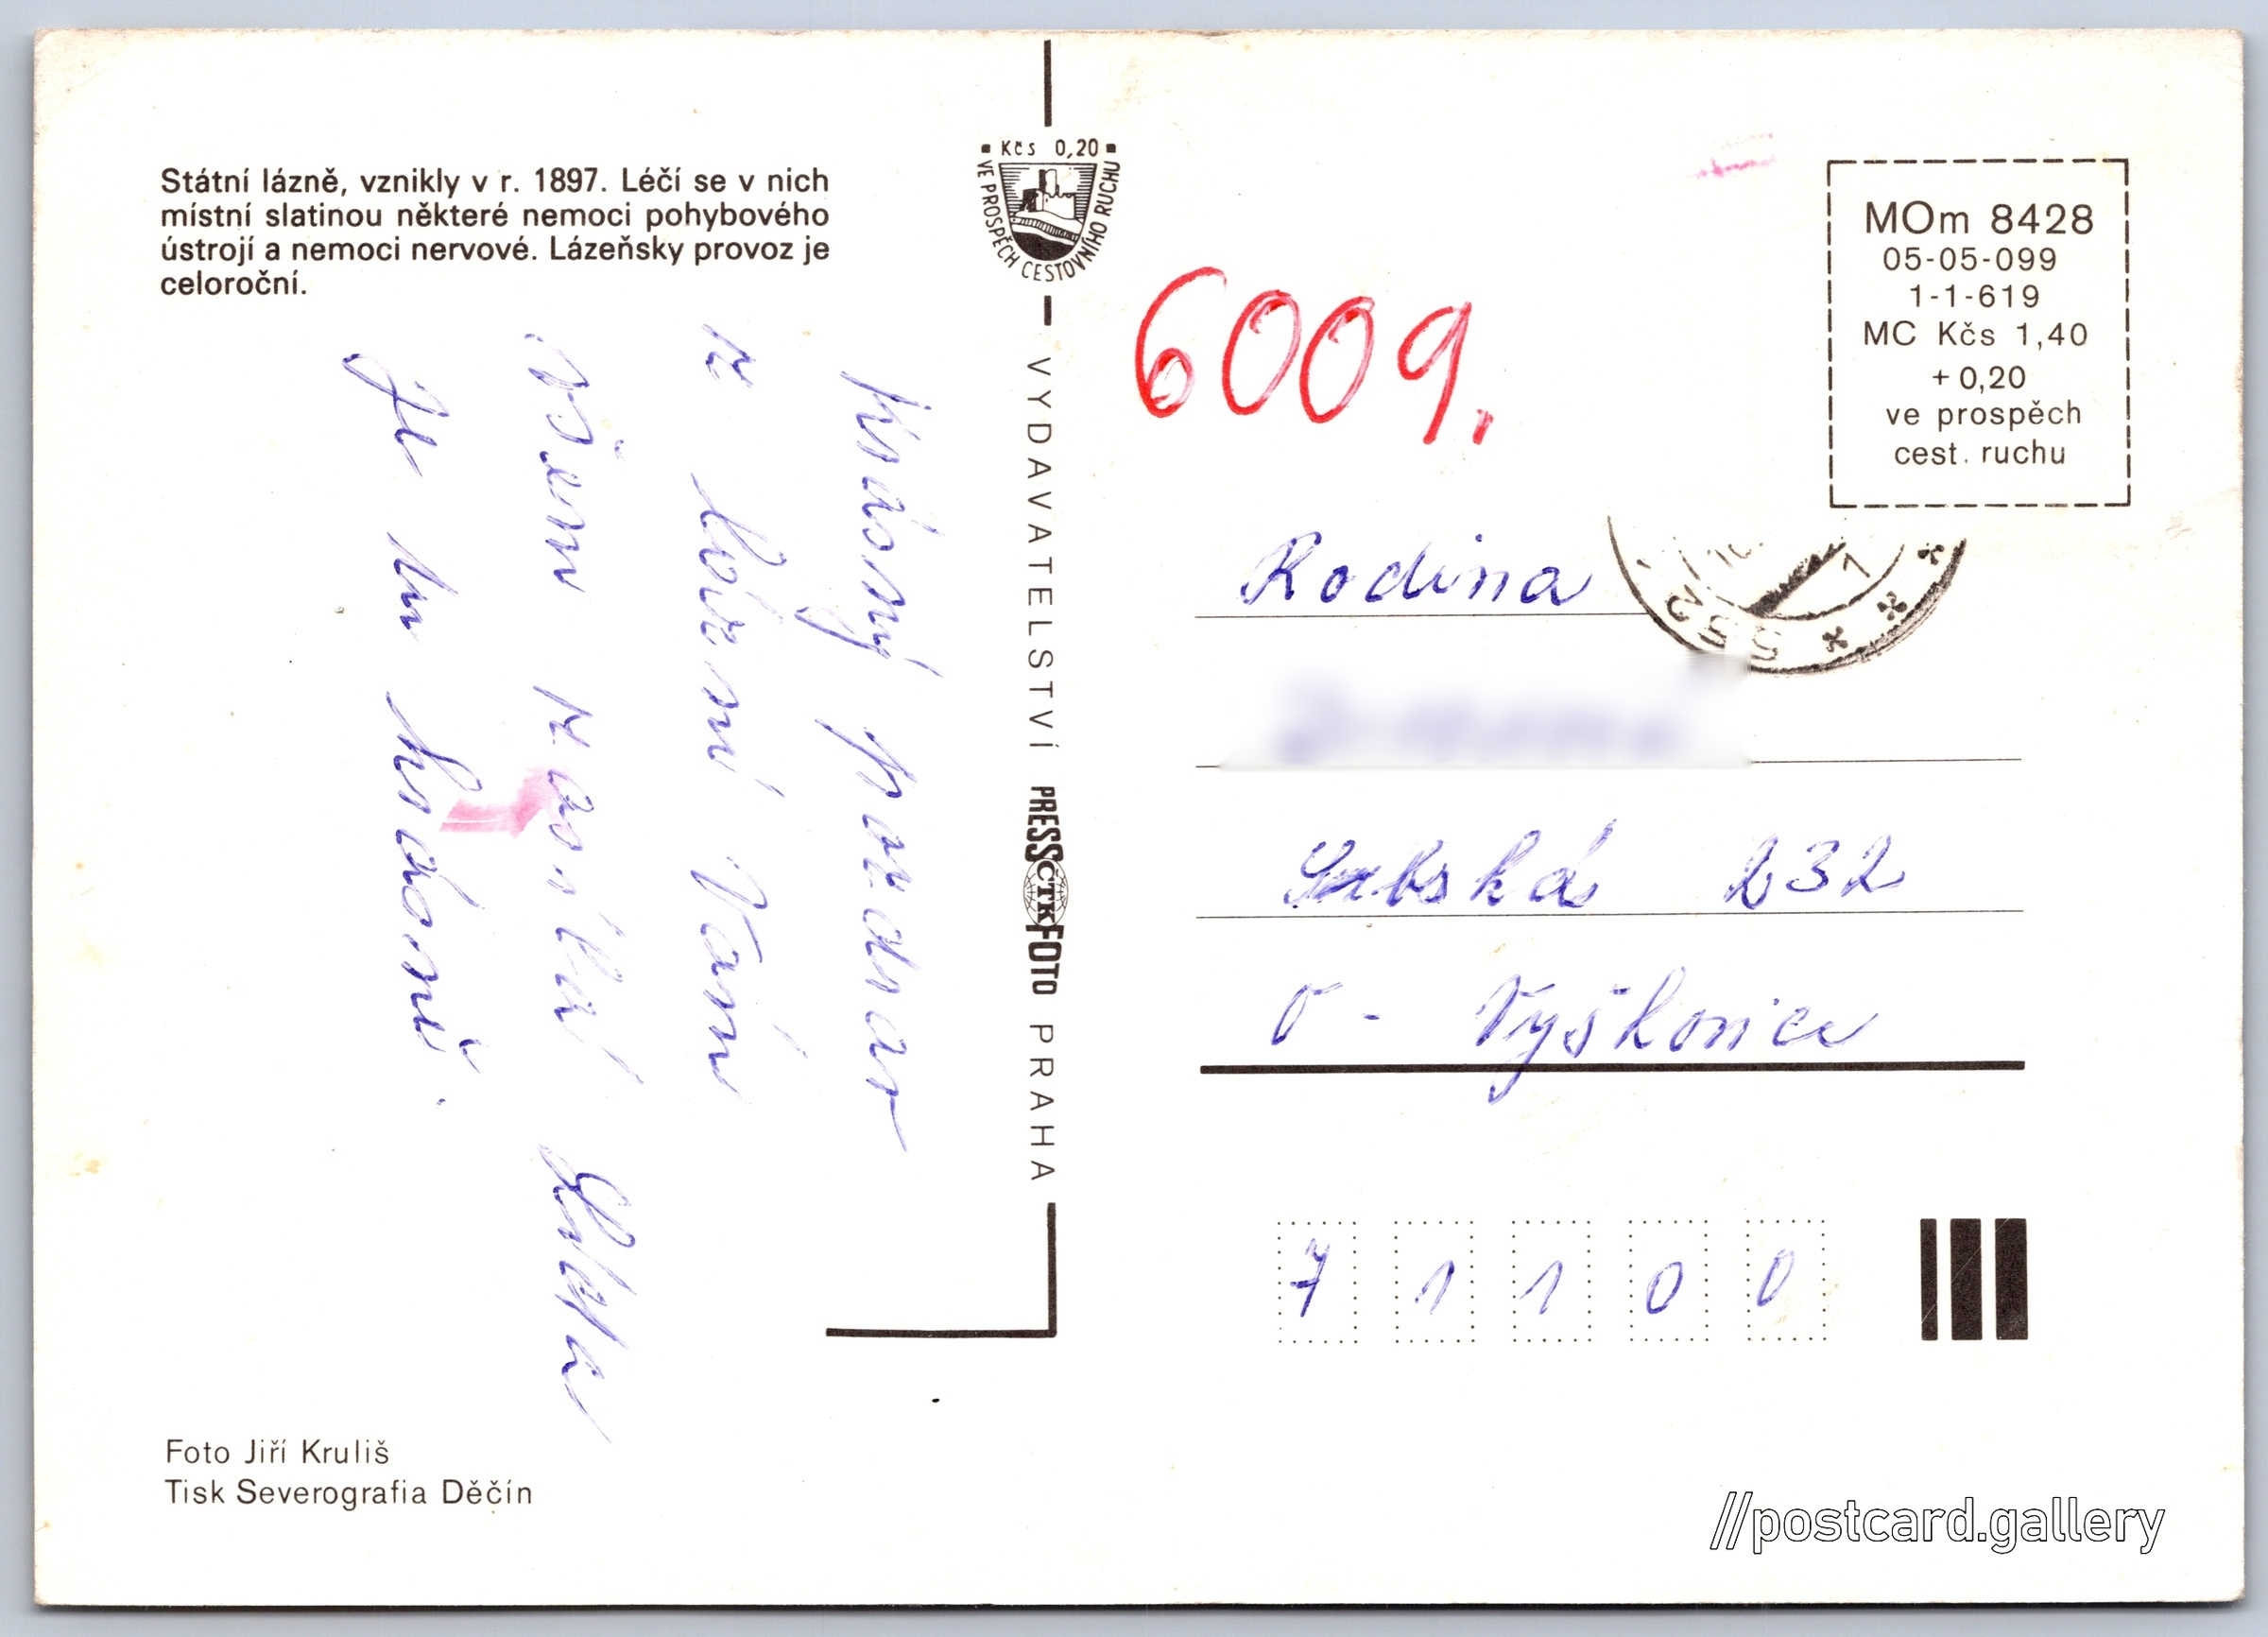 Státní lázně, vznikly v r. 1897. Léčí se v nich
místní slatinou některé nemoci pohybového
ústrojí a nemoci nervové. Lázeňsky provoz je
celoroční.
Krásný pozdrav
z lázní Vám
všem zasílá
Je tu krásně.
Foto Jiří Kruliš
Tisk Severografia Děčín
Kčs 0,20
VE PROSPĚCH CESTOVNÍHO RUCHU
VYDAVATELSTVÍ PRESSFOTO PRAHA
ČTK
6009.
MOm 8428
05-05-099
1-1-619
MC Kčs 1,40
+ 0,20
ve prospěch
cest. ruchu
552
Rodina
232
O - Vyškovice
71100
//postcard.gallery